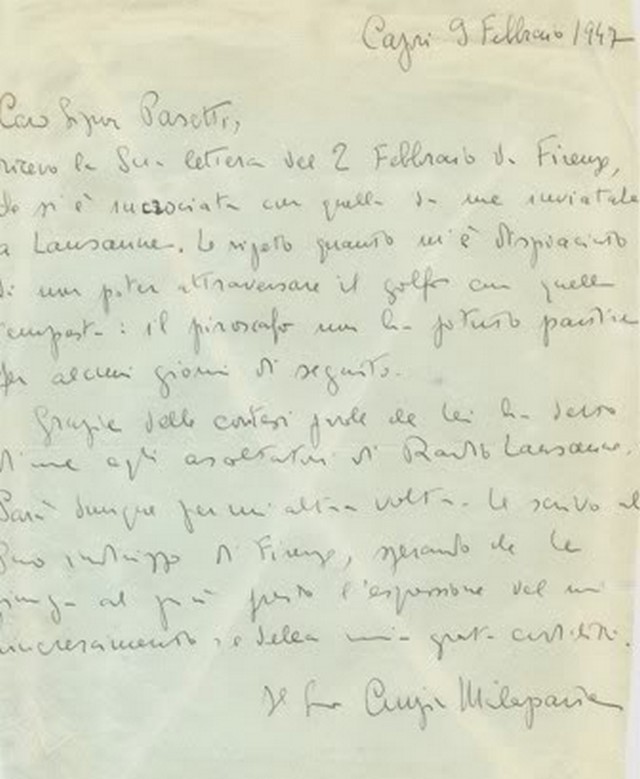 Capri 9 Febbraio 1947
Caro Signor Pasetti,
ricevo la Sua lettera del 2 Febbraio da Firenze,
che si è incrociata con quella da me inviatale
a Lausanne. Le ripeto quanto m'è dispiaciuto
di non poter attraversare il golfo con quella
tempesta: il piroscafo non ha potuto partire
per alcuni giorni di seguito.
Grazie delle cortesi parole che Lei ha detto
di me agli ascoltatori di Radio Lausanne.
Sarà dunque per un'altra volta. Le scrivo al
Suo indirizzo di Firenze, sperando che le
giunga al più presto l'espressione del mio
rincrescimento, e della mia grata cordialità.
Il Suo Curzio Malaparte